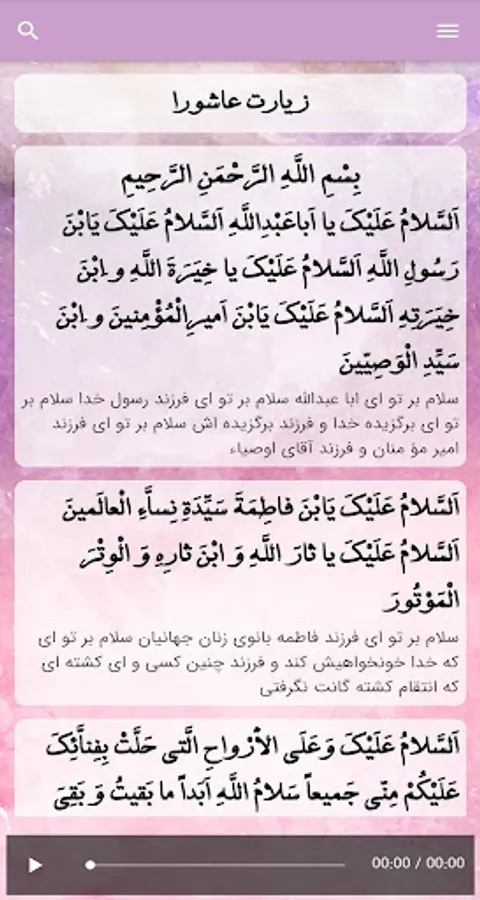 زیارت عاشورا
بِسْمِ اللَّهِ الرَّحْمَنِ الرَّحِيمِ
اَلسَّلامُ عَلَيْكَ يا اَباعَبْدِاللَّهِ اَلسَّلامُ عَلَيْكَ يَابْنَ
رَسُولِ اللَّهِ اَلسَّلامُ عَلَيْكَ يا خِيَرَةَ اللَّهِ و ابْنَ
خِيَرَتِهِ اَلسَّلامُ عَلَيْكَ يَابْنَ اَميرِالْمُؤْمِنينَ و ابْنَ
سَيِّدِ الْوَصِيّينَ
سلام بر تو ای ابا عبدالله سلام بر تو ای فرزند رسول خدا سلام بر
تو ای برگزیده خدا و فرزند برگزیده اش سلام بر تو ای فرزند
امیر مؤ منان و فرزند آقای اوصیاء
اَلسَّلامُ عَلَيْكَ يَابْنَ فاطِمَةَ سَيِّدَةِ نِساَّءِ الْعالَمينَ
اَلسَّلامُ عَلَيْكَ يا ثارَ اللَّهِ وَ ابْنَ ثارِهِ وَ الْوِتْرَ
الْمَوْتُورَ
سلام بر تو ای فرزند فاطمه بانوی زنان جهانیان سلام بر تو ای
که خدا خونخواهیش کند و فرزند چنین کسی و ای کشته ای
که انتقام کشته گانت نگرفتی
اَلسَّلامُ عَلَيْكَ وَعَلَى الاَْرْواحِ الَّتى حَلَّتْ بِفِناَّئِكَ
عَلَيْكُمْ مِنّى جَميعاً سَلامُ اللَّهِ اَبَداً ما بَقيتُ وَ بَقِىَ
00:00 / 00:00